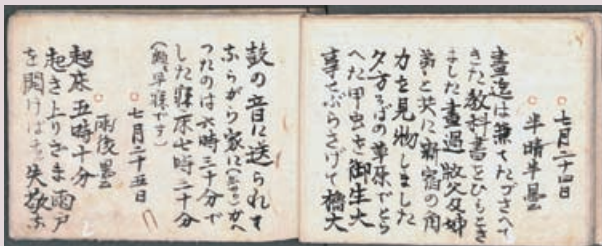 七月二十四日
半晴半曇
晝迄は兼てたづさへて
きた教科書をひもとき
ました晝過敏久及姉
弟と共に新宿の角
力を見物しました
夕方そばの草原でとら
へた甲虫を御生大
事でぶらさげて橋大
鼓の音に送られて
ぶらがら家に
つたのは六時三十分で
した寝床七時二十分
（頗早寝です）
七月二十五日
雨後曇
起床五時十分
起き上りざま雨戸
を開けばを失敬な